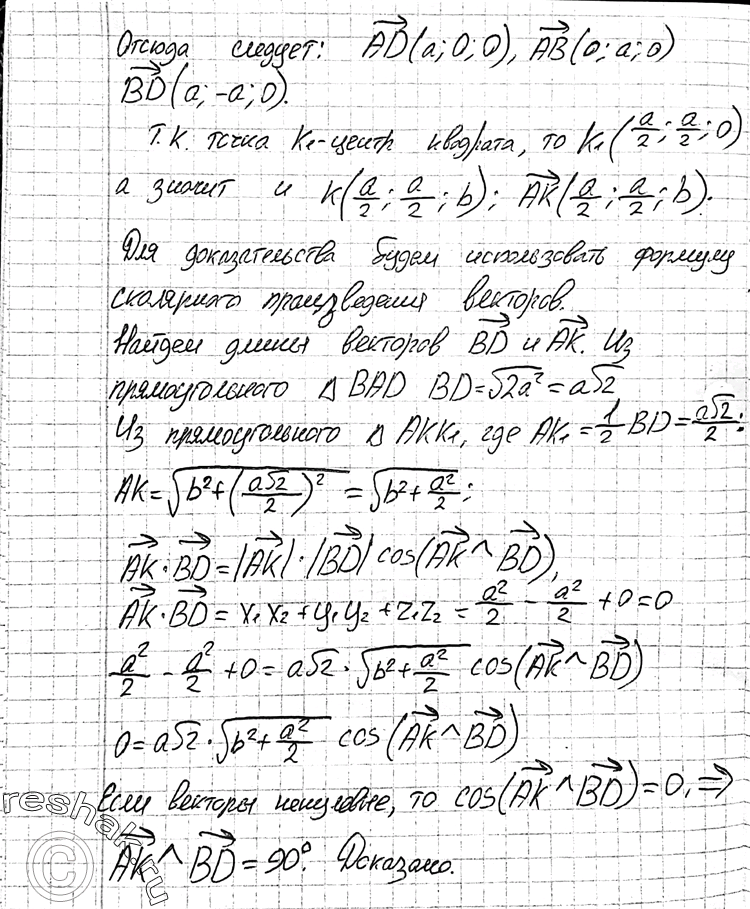 Отсюда следует: AD(a; 0; 0), AB(0; a; 0)
BD(a; -a; 0).
Т.к. точка K₁-центр квадрата, то K₁(a/2; a/2; 0)
а значит и K(a/2; a/2; b); AK(a/2; a/2; b).
Для доказательства будем использовать формулу
скалярного произведения векторов.
Найдем длины векторов BD и AK. Из
прямоугольного △ BAD BD=√2a² = a√2
Из прямоугольного △ AKK₁, где AK₁ = 1/2 BD = a√2/2:
AK = √(b²+(a√2/2)²) = √(b²+a²/2);
AK · BD = |AK| · |BD| cos(AK ^ BD),
AK · BD = x₁x₂ + y₁y₂ + z₁z₂ = a²/2 - a²/2 + 0 = 0
a²/2 - a²/2 + 0 = a√2 · √(b²+a²/2) cos(AK ^ BD)
0 = a√2 · √(b²+a²/2) cos(AK ^ BD)
Если векторы ненулевые, то cos(AK ^ BD) = 0, ⇒
AK ^ BD = 90°. Доказано.
©reshak.ru